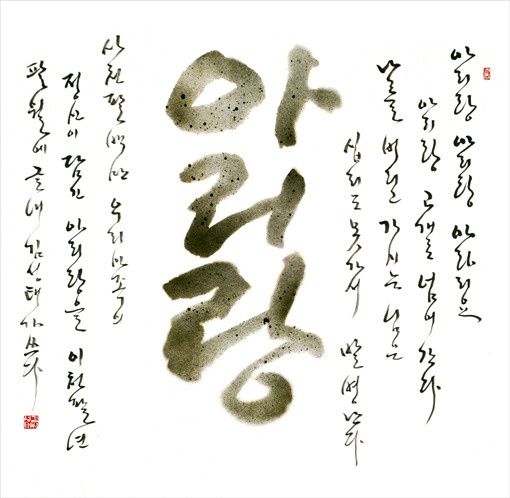 아리랑 아리랑 아라리요
아리랑 고개를 넘어 간다
나를 버리고 가시는 님은
십리도 못가서 발병난다
아리랑
사천팔백만 우리민족의
정신이 담긴 아리랑을 이천팔년
팔월에 글내 김선태가 쓰다